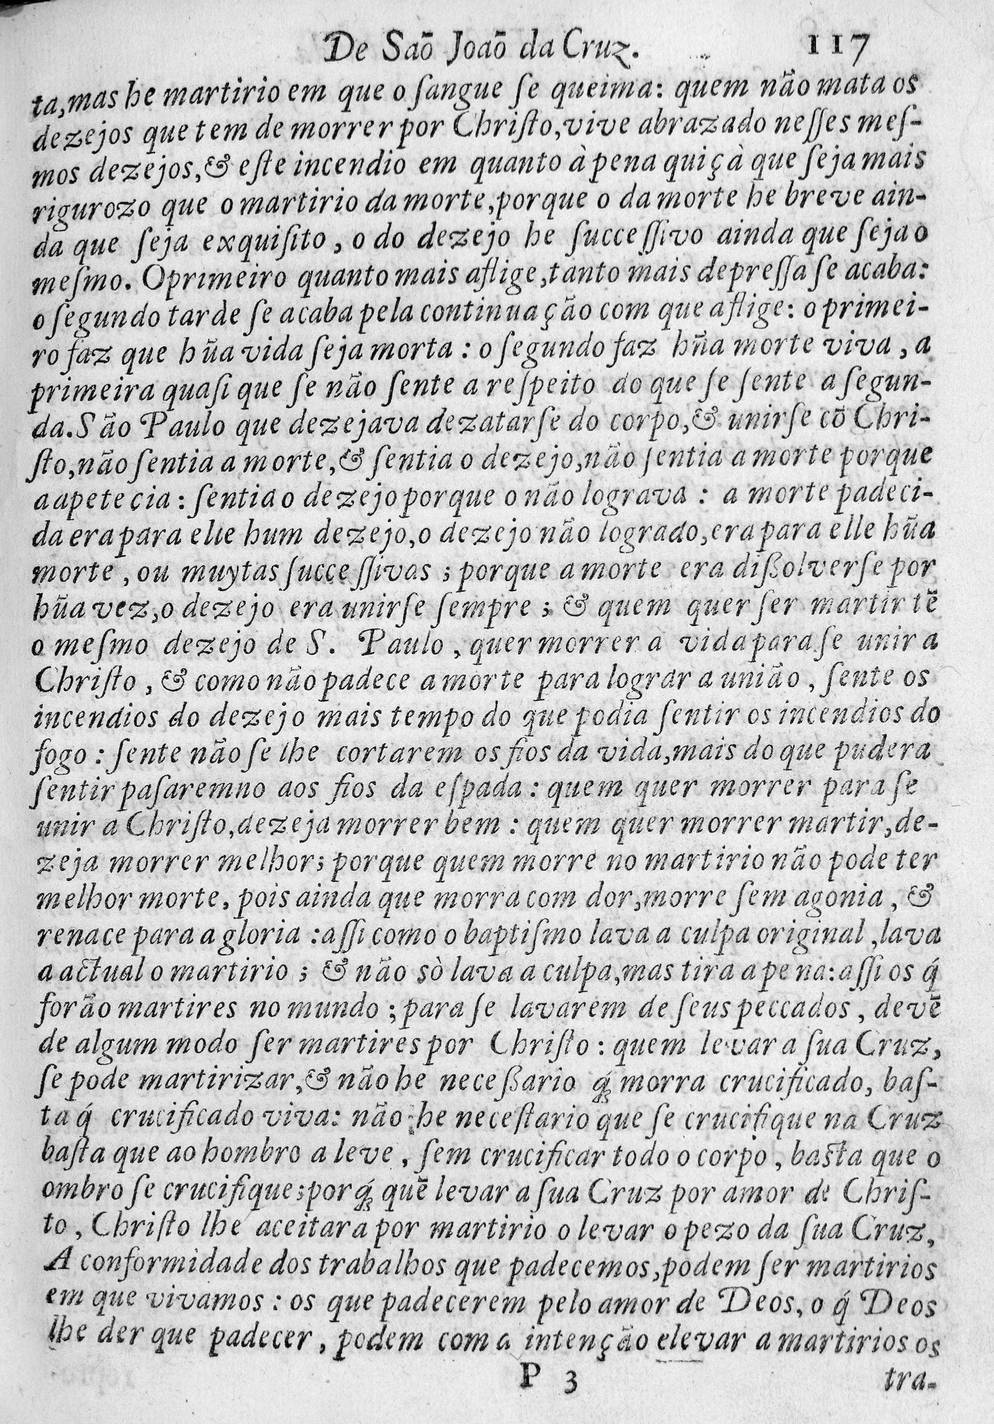 De Saõ Joaõ da Cruz. 117
ta, mas he martirio em que o ſangue ſe queima: quem não mata os
dezejos que tem de morrer por Chriſto, vive abrazado neſſes meſ-
mos dezejos, & eſte incendio em quanto à pena quiçà que ſeja mais
rigurozo que o martirio da morte, porque o da morte he breve ain-
da que ſeja exquiſito, o do dezejo he ſucceſſivo ainda que ſeja o
meſmo. O primeiro quanto mais aflige, tanto mais depreſſa ſe acaba:
o ſegundo tarde ſe acaba pela continuação com que aflige: o primei-
ro faz que hũa vida ſeja morta: o ſegundo faz hũa morte viva, a
primeira quaſi que ſe não ſente a reſpeito do que ſe ſente a ſegun-
da. São Paulo que dezejava dezatarſe do corpo, & unirſe cõ Chri-
ſto, não ſentia a morte, & ſentia o dezejo, não ſentia a morte porque
a apetecia: ſentia o dezejo porque o não lograva: a morte padeci-
da era para elle hum dezejo, o dezejo não logrado, era para elle hũa
morte, ou muytas ſucceſſivas; porque a morte era dißolverſe por
hũa vez, o dezejo era unirſe ſempre; & quem quer ſer martir tẽ
o meſmo dezejo de S. Paulo, quer morrer a vida para ſe unir a
Chriſto, & como não padece a morte para lograr a união, ſente os
incendios do dezejo mais tempo do que podia ſentir os incendios do
fogo: ſente não ſe lhe cortarem os fios da vida, mais do que pudera
ſentir paſaremno aos fios da eſpada: quem quer morrer para ſe
unir a Chriſto, dezeja morrer bem: quem quer morrer martir, de-
zeja morrer melhor; porque quem morre no martirio não pode ter
melhor morte, pois ainda que morra com dor, morre ſem agonia, &
renace para a gloria: aſſi como o baptiſmo lava a culpa original, lava
a actual o martirio; & não sò lava a culpa, mas tira a pena: aſſi os q́
forão martires no mundo; para ſe lavarem de ſeus peccados, devẽ
de algum modo ſer martires por Chriſto: quem levar a ſua Cruz,
ſe pode martirizar, & não he neceßario q́ morra crucificado, baſ-
ta q́ crucificado viva: não he neceſtario que ſe crucifique na Cruz
baſta que ao hombro a leve, ſem crucificar todo o corpo, baſta que o
ombro ſe crucifique; porq́ quẽ levar a ſua Cruz por amor de Chriſ-
to, Chriſto lhe aceitara por martirio o levar o pezo da ſua Cruz,
A conformidade dos trabalhos que padecemos, podem ſer martirios
em que vivamos: os que padecerem pelo amor de Deos, o q́ Deos
lhe der que padecer, podem com a intenção elevar a martirios os
P 3 tra-